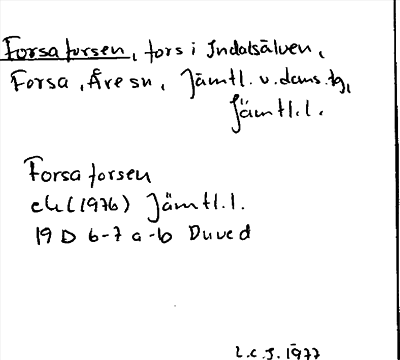 Forsaforsen, fors i Indalsälven,
Forsa, Åre sn, Jämtl. v. doms.tg,
Jämtl.l.
Forsaforsen
ek (1976) Jämtl.l.
19 D 6-7 a-b Duved
L.C.J. 1977